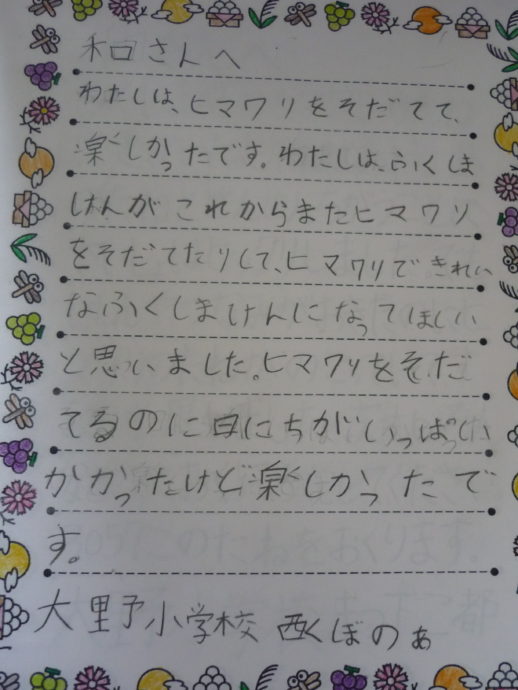 和口さんへ
わたしは、ヒマワリをそだてて、
楽しかったです。わたしは、ふくしま
けんがこれからまたヒマワリ
をそだてたりして、ヒマワリできれい
なふくしまけんになってほしい
と思いました。ヒマワリをそだ
てるのに日にちがいっぱい
かかったけど楽しかったで
す。
大里予小学校 西くぼのぁ